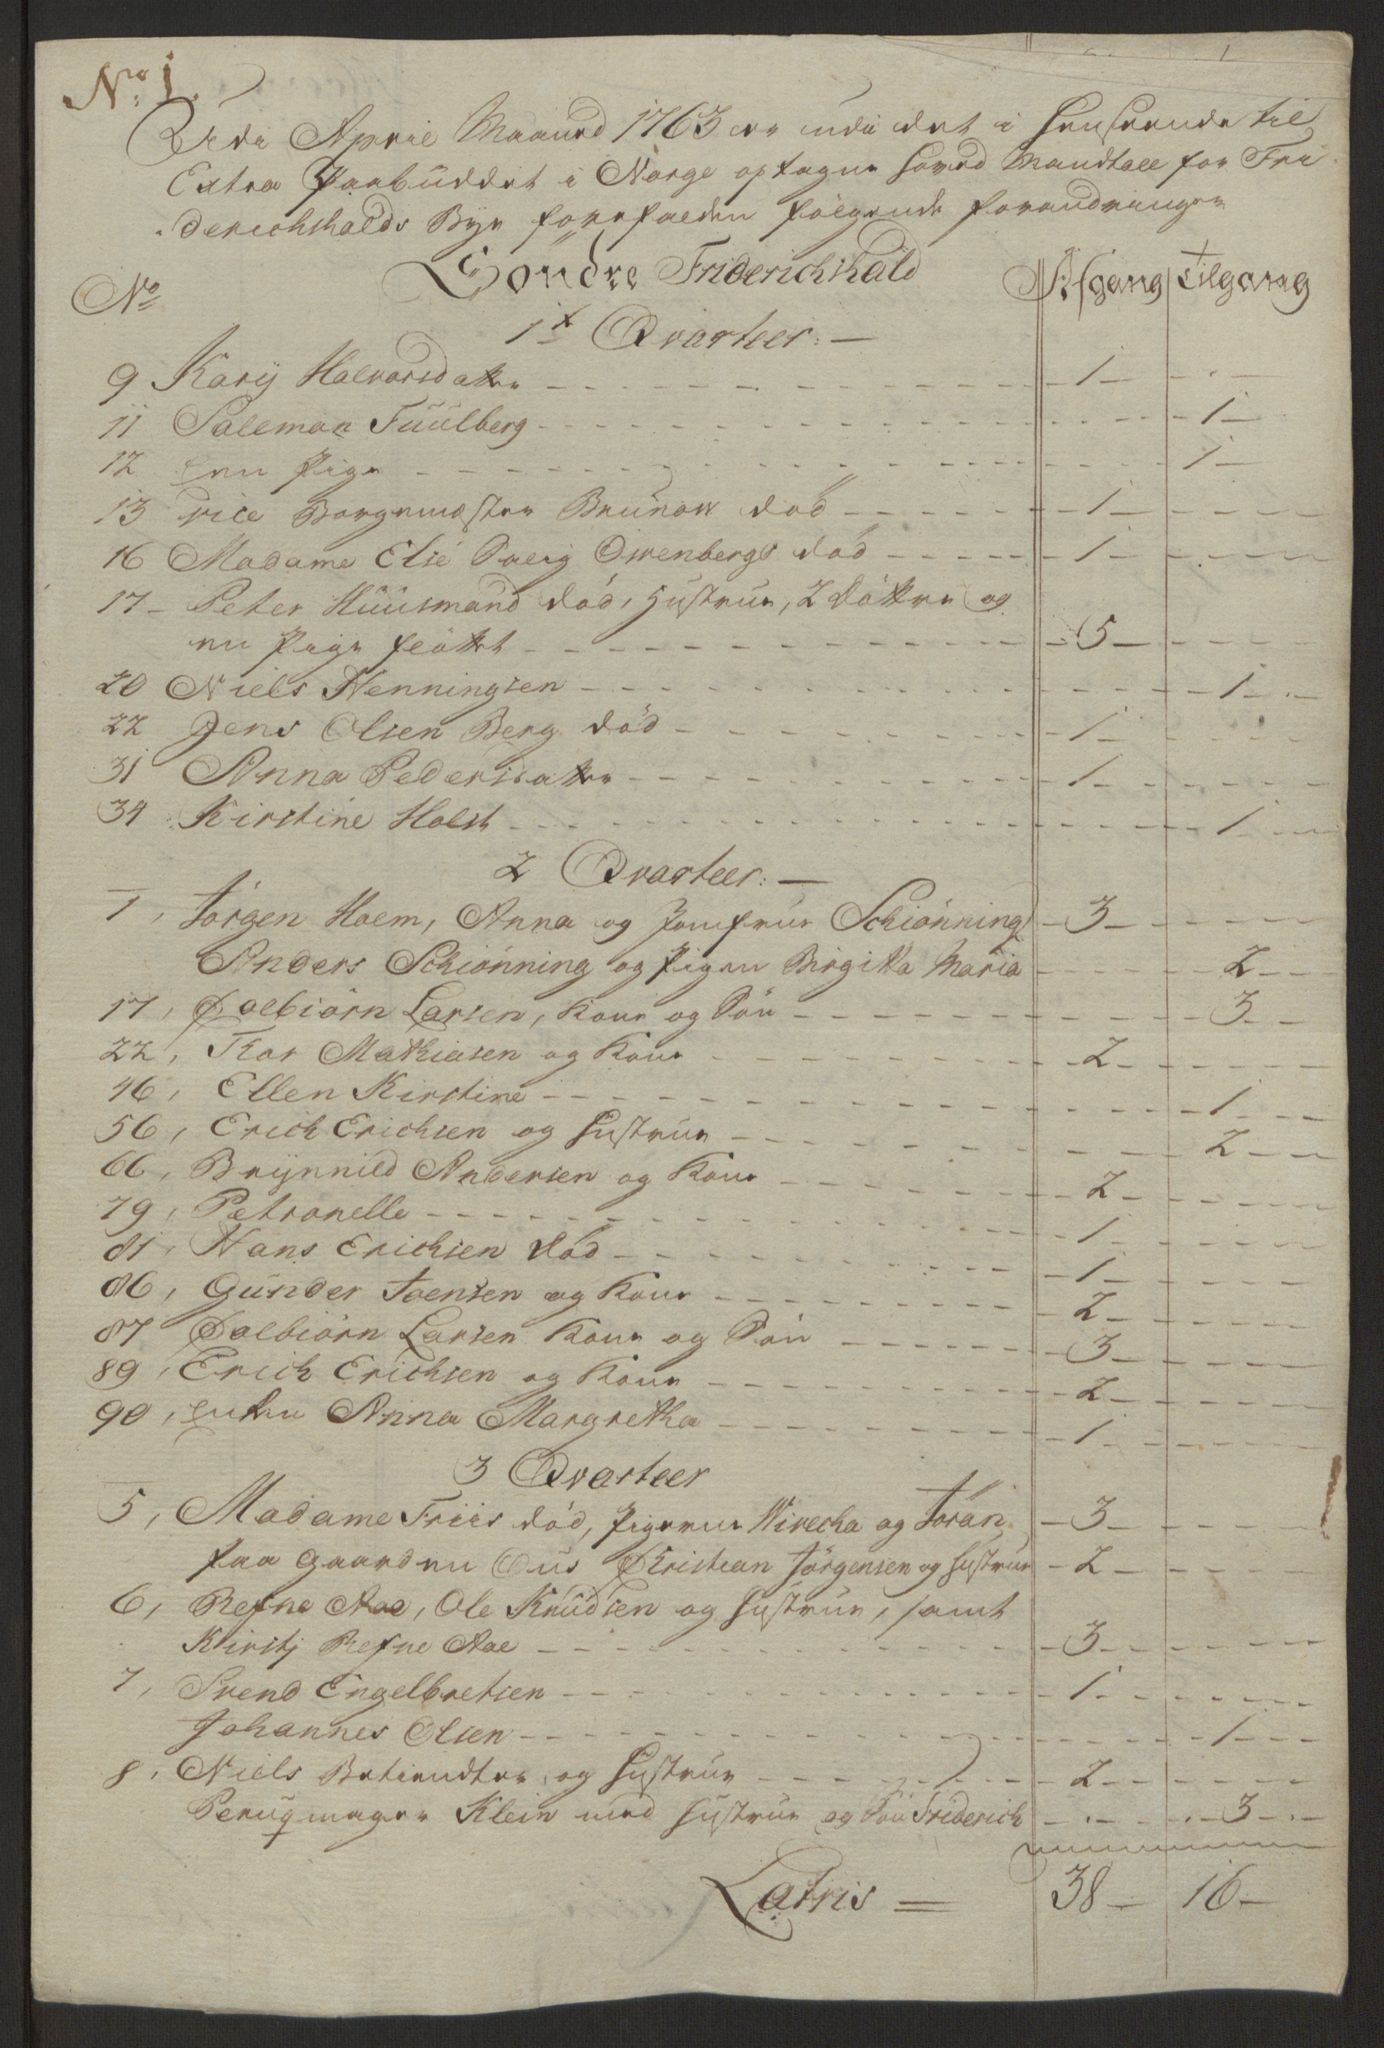 No: 1.
Udi April Maaned 1763 er udi det i henseende til
Extra Paabüddet i Norge optagne hoved Mandtall for Fri
derichshalds Bye forefalden følgende forandringer
Söndre Friderichshald
No Afgang Tilgang
1te Qvarteer: —
9 Karij Halvorsdatter - - - 1 -
11 Salemon Füülberg - - - 1 -
12 en Pige - - - 1 -
13 vice Borgemester Brünow död - - - 1 -
16 Madame Else Salig Ovenbergs död - - - 1 -
17 - Peter Hüüsmand död, Hustrue, 2 döttre og
en Pige fløttet - - - 5 -
20 Niels Henningsen - - - 1 -
22 Jens Olsen Berg död - - - 1 -
31 Anna Pedersdatter - - - 1 -
34 Kirstine Holst - - - 1 -
2 Qvarteer: —
1, Jörgen Hoem, Anna og Jomfrue Schiönning - 3 -
Anders Schiönning og Pigen Birgitta Maria - - - 2 -
17, Dolbiörn Larsen, Kone og Sön - - - 3 -
22, Thor Mathiasen og Kone - - - 2 -
46, Ellen Kirstine - - - 1 -
56, Erich Erichsen og Hustrue - - - 2 -
66, Brÿnnild Andersen og Kone - - - 2 -
79, Petronelle - - - 1 -
81, Hans Erichsen död - - - 1 -
86, Günder Joensen og Kone - - - 2 -
87 Dolbiörn Larsen Kone og Sön - - - 3 -
89, Erich Erichsen og Kone - - - 2 -
90, Enken Anna Margretha - - - 1 -
3 Qvarteer
5, Madame Friis död, Pigerne Wivecha og Jörán - 3 -
paa gaarden Christian Jörgensen og Hustrue - 2 -
6, Refne Aae, Ole Knüdsen og Hustrue, samt
Kirstj Refne Aae - - - 3 -
7, Svend Engelbretsen - - - 1 -
Johannes Olsen - - - 1 -
8, Niels Betiendter og Hustrue - - - 2 -
Peruqmager Klein med Hustrue og Sön Friderich - - - 3 -
Latris = 38 - 16 -